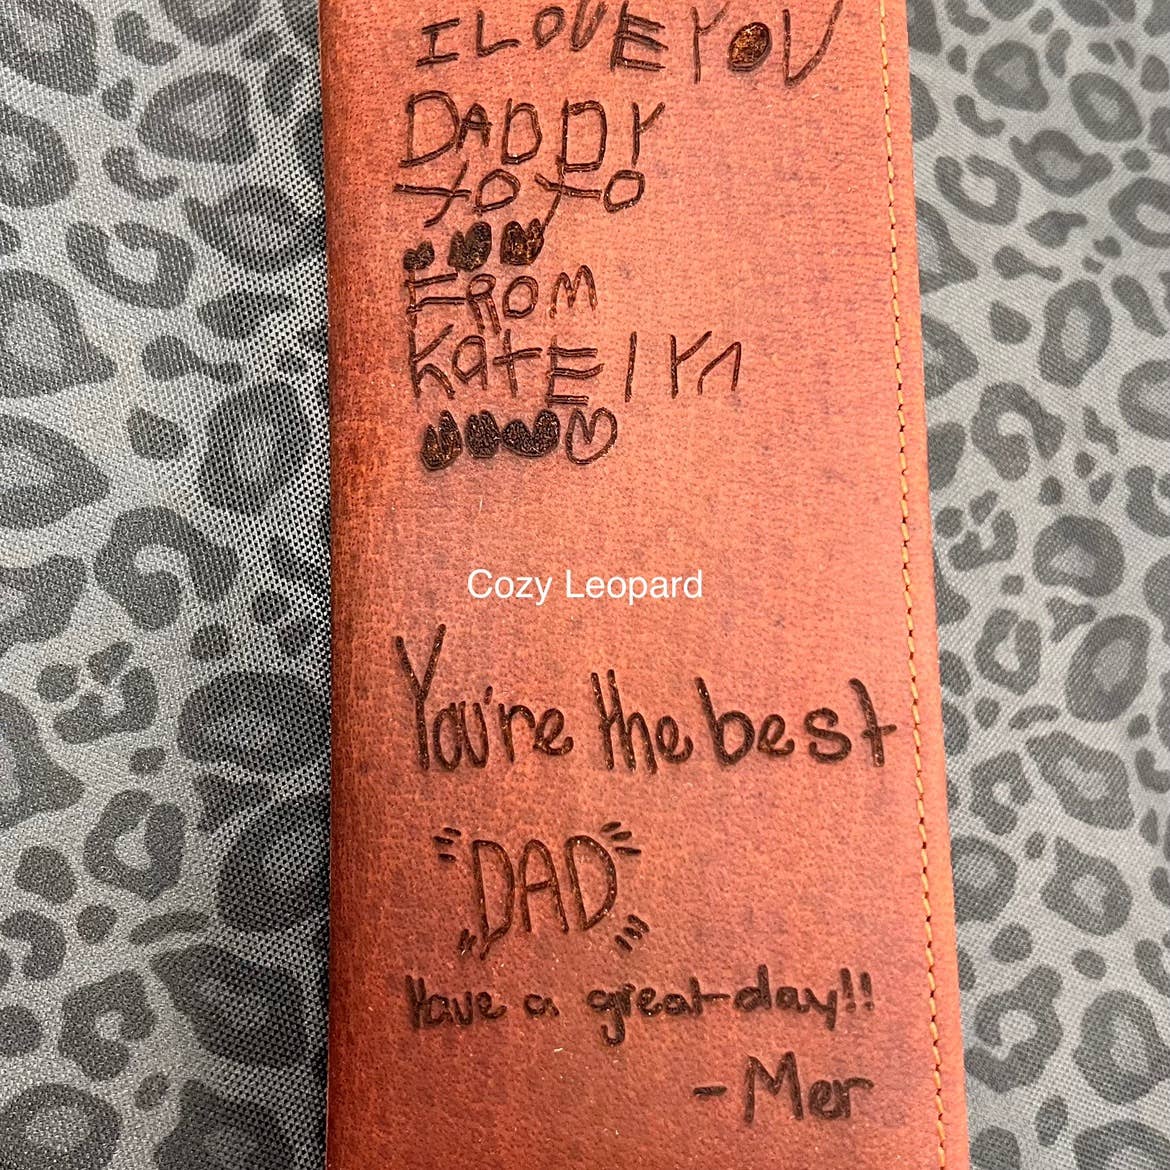 I LOVE YOU
DADDY
XOXO
FROM
KatElyn
Cozy Leopard
You're the best
"DAD"
Have a great day!!
- Mer